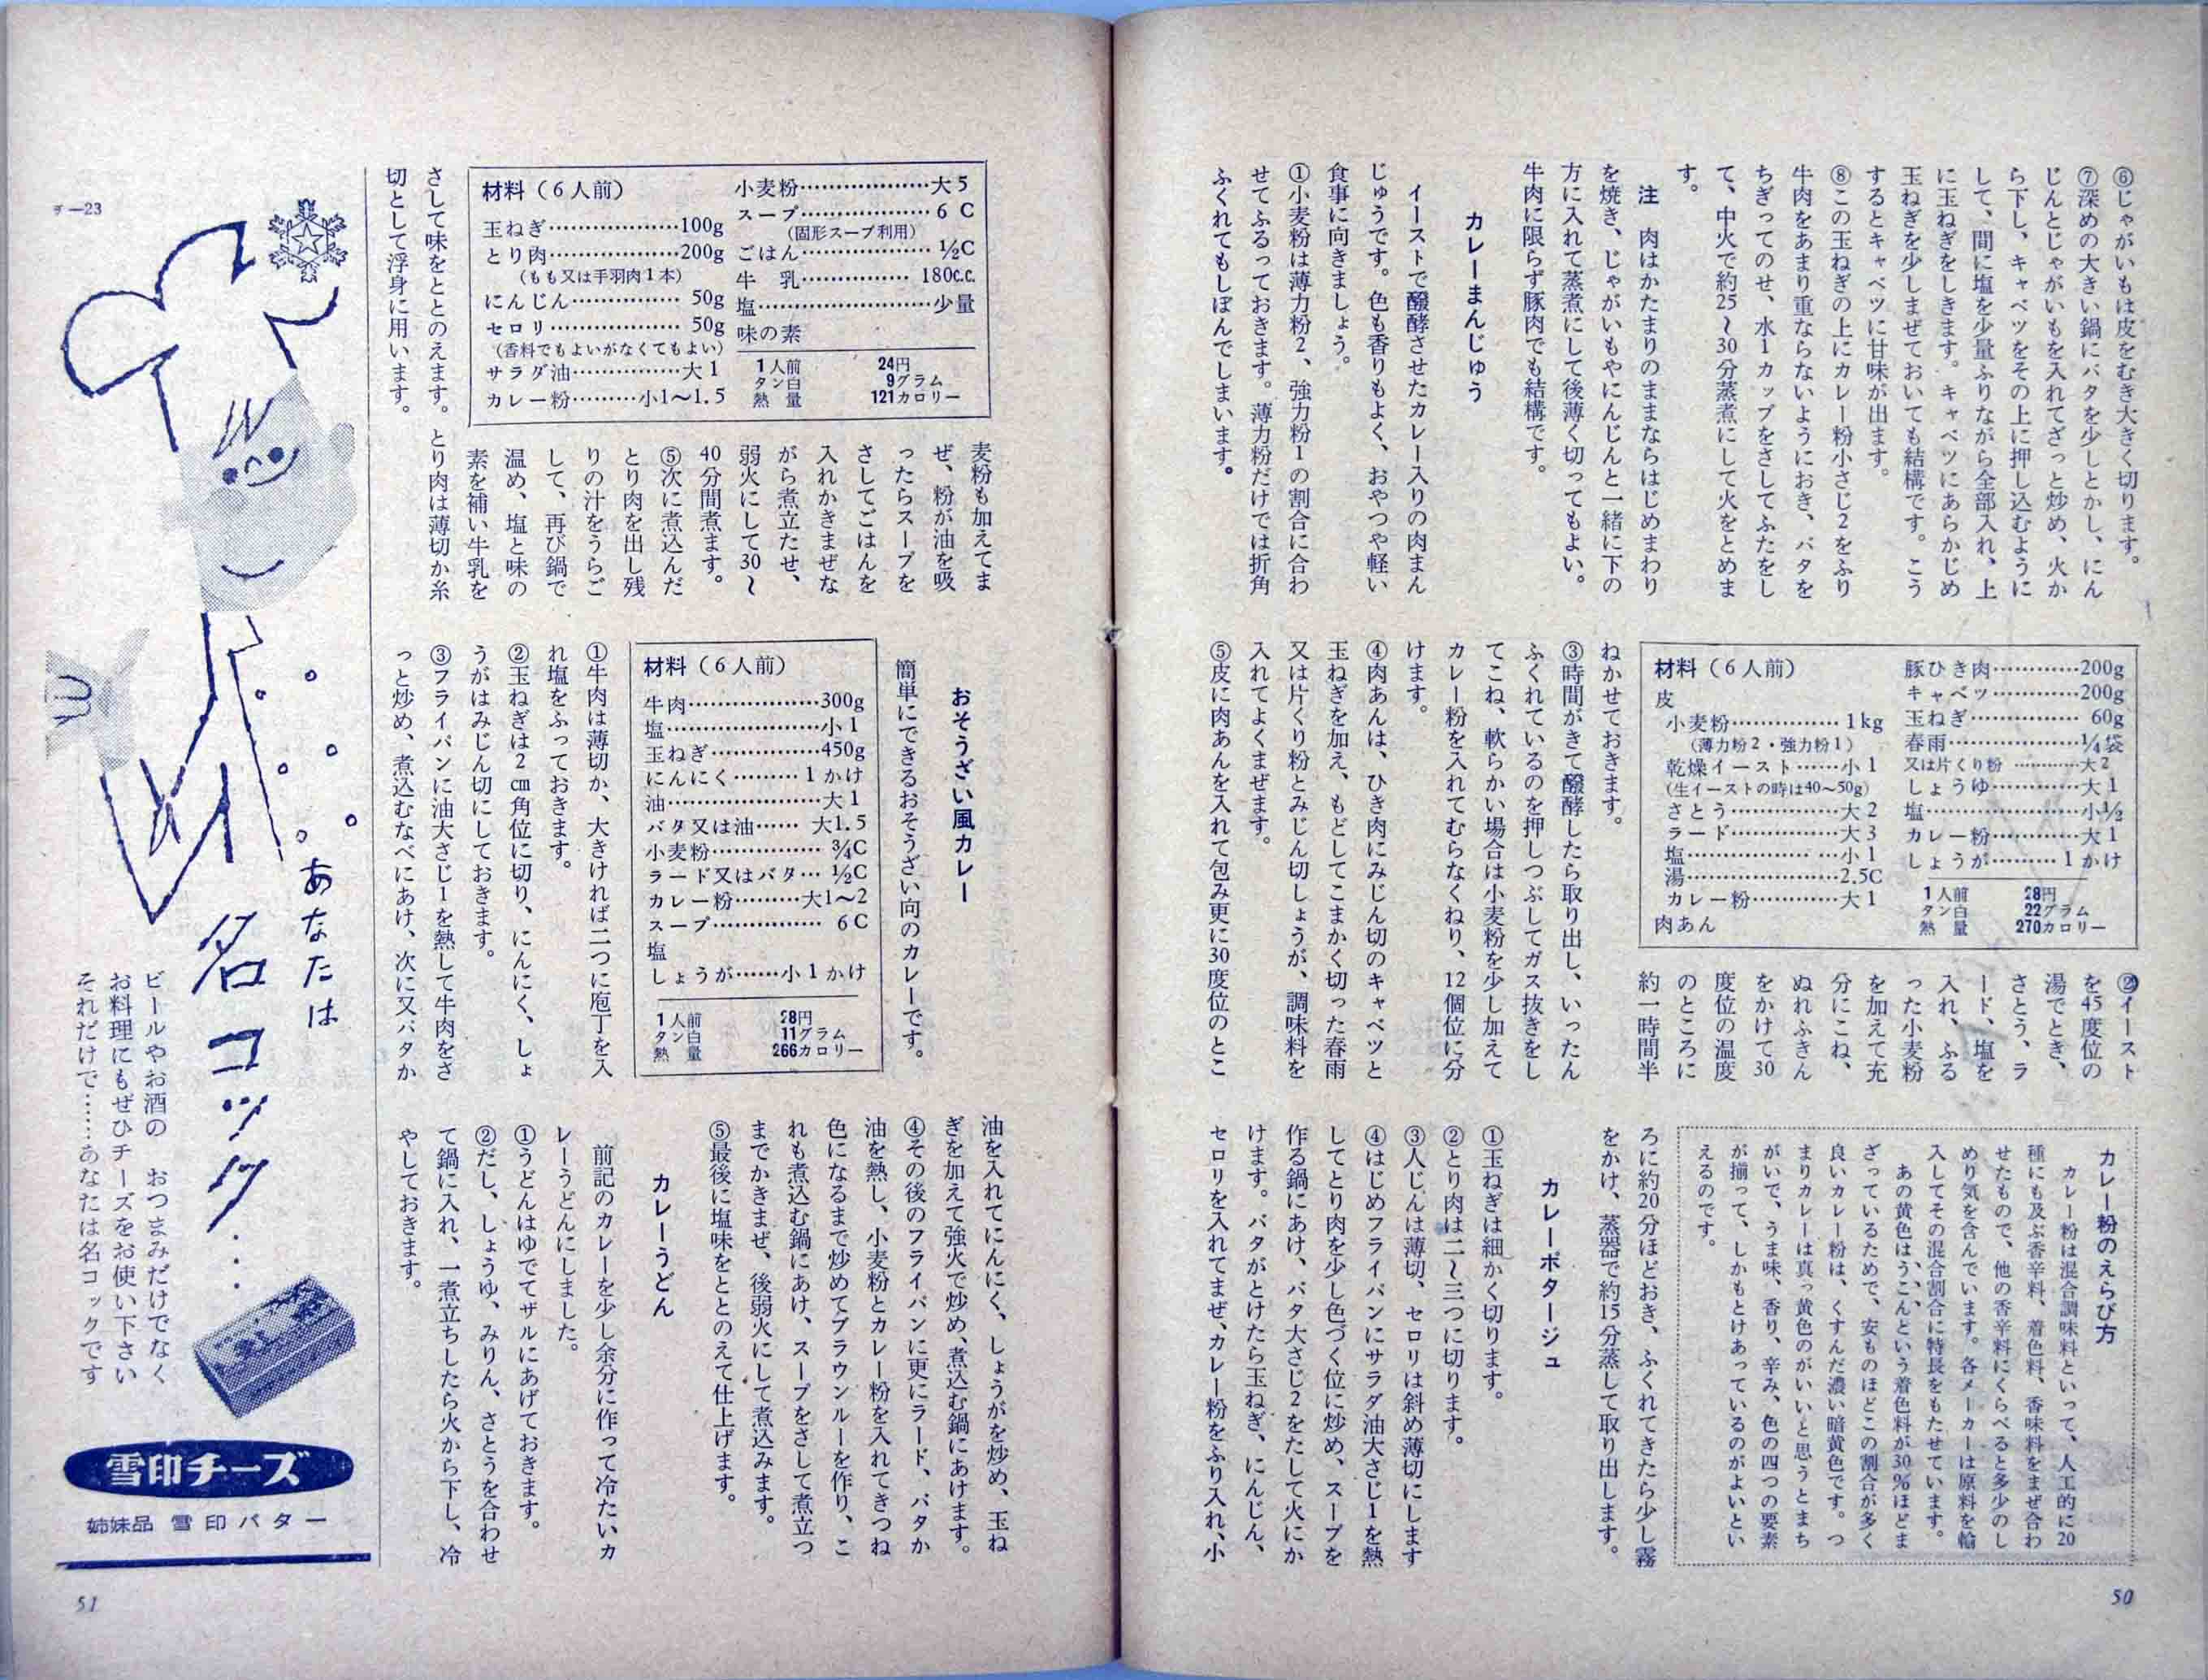 ⑥じゃがいもは皮をむき大きく切ります。
⑦深めの大きい鍋にバタを少しとかし、にん
じんとじゃがいもを入れてざっと炒め、火か
ら下し、キャベツをその上に押し込むように
して、間に塩を少量ふりながら全部入れ、上
に玉ねぎをしきます。キャベツにあらかじめ
玉ねぎを少しまぜておいても結構です。こう
するとキャベツに甘味が出ます。
⑧この玉ねぎの上にカレー粉小さじ2をふり
牛肉をあまり重ならないようにおき、バタを
ちぎってのせ、水1カップをさしてふたをし
て、中火で約25〜30分蒸煮にして火をとめま
す。
注　肉はかたまりのままならはじめまわり
を焼き、じゃがいもやにんじんと一緒に下の
方に入れて蒸煮にして後薄く切ってもよい。
牛肉に限らず豚肉でも結構です。
カレーまんじゅう
イーストで醱酵させたカレー入りの肉まん
じゅうです。色も香りもよく、おやつや軽い
食事に向きましょう。
①小麦粉は薄力粉2、強力粉1の割合に合わ
せてふるっておきます。薄力粉だけでは折角
ふくれてもしぼんでしまいます。
材料（6人前）
皮
小麦粉……………1kg
（薄力粉2・強力粉1）
乾燥イースト……小1
（生イーストの時は40〜50g）
さとう……………大2
ラード……………大3
塩…………………小1
湯…………………2.5C
カレー粉…………大1
肉あん
豚ひき肉…………200g
キャベツ…………200g
玉ねぎ……………60g
春雨………………¼袋
又は片くり粉…………大2
しょうゆ…………大1
塩…………………小½
カレー粉…………大1
しょうが………1かけ
1人前　28円
タン白　22グラム
熱量　270カロリー
②イースト
を45度位の
湯でとき、
さとう、ラ
ード、塩を
入れ、ふる
った小麦粉
を加えて充
分にこね、
ぬれふきん
をかけて30
度位の温度
のところに
約一時間半
ねかせておきます。
③時間がきて醱酵したら取り出し、いったん
ふくれているのを押しつぶしてガス抜きをし
てこね、軟らかい場合は小麦粉を少し加えて
カレー粉を入れてむらなくねり、12個位に分
けます。
④肉あんは、ひき肉にみじん切のキャベツと
玉ねぎを加え、もどしてこまかく切った春雨
又は片くり粉とみじん切しょうが、調味料を
入れてよくまぜます。
⑤皮に肉あんを入れて包み更に30度位のとこ
カレー粉のえらび方
カレー粉は混合調味料といって、人工的に20
種にも及ぶ香辛料、着色料、香味料をまぜ合わ
せたもので、他の香辛料にくらべると多少のし
めり気を含んでいます。各メーカーは原料を輸
入してその混合割合に特長をもたせています。
あの黄色はうこんという着色料が30％ほどま
ざっているためで、安ものほどこの割合が多く
良いカレー粉は、くすんだ濃い暗黄色です。つ
まりカレーは真っ黄色のがいいと思うとまち
がいで、うま味、香り、辛み、色の四つの要素
が揃って、しかもとけあっているのがよいとい
えるのです。
ろに約20分ほどおき、ふくれてきたら少し霧
をかけ、蒸器で約15分蒸して取り出します。
カレーポタージュ
①玉ねぎは細かく切ります。
②とり肉は二〜三つに切ります。
③人じんは薄切、セロリは斜め薄切にします
④はじめフライパンにサラダ油大さじ1を熱
してとり肉を少し色づく位に炒め、スープを
作る鍋にあけ、バタ大さじ2をたして火にか
けます。バタがとけたら玉ねぎ、にんじん、
セロリを入れてまぜ、カレー粉をふり入れ、小
50
材料（6人前）
玉ねぎ………………100g
とり肉………………200g
（もも又は手羽肉1本）
にんじん……………50g
セロリ………………50g
（香料でもよいがなくてもよい）
サラダ油……………大1
カレー粉………小1〜1.5
小麦粉………………大5
スープ………………6C
（固形スープ利用）
ごはん………………½C
牛　乳……………180c.c.
塩……………………少量
味の素
1人前　24円
タン白　9グラム
熱量　121カロリー
麦粉も加えてま
ぜ、粉が油を吸
ったらスープを
さしてごはんを
入れかきまぜな
がら煮立たせ、
弱火にして30〜
40分間煮ます。
⑤次に煮込んだ
とり肉を出し残
りの汁をうらご
して、再び鍋で
温め、塩と味の
素を補い牛乳を
さして味をととのえます。とり肉は薄切か糸
切として浮身に用います。
おそうざい風カレー
簡単にできるおそうざい向のカレーです。
材料（6人前）
牛肉………………300g
塩…………………小1
玉ねぎ……………450g
にんにく………1かけ
油…………………大1
バタ又は油……大1.5
小麦粉……………¾C
ラード又はバタ…½C
カレー粉………大1〜2
スープ……………6C
塩
しょうが……小1かけ
1人前　28円
タン白　11グラム
熱量　266カロリー
①牛肉は薄切か、大きければ二つに庖丁を入
れ塩をふっておきます。
②玉ねぎは2㎝角位に切り、にんにく、しょ
うがはみじん切にしておきます。
③フライパンに油大さじ1を熱して牛肉をさ
っと炒め、煮込むなべにあけ、次に又バタか
油を入れてにんにく、しょうがを炒め、玉ね
ぎを加えて強火で炒め、煮込む鍋にあけます。
④その後のフライパンに更にラード、バタか
油を熱し、小麦粉とカレー粉を入れてきつね
色になるまで炒めてブラウンルーを作り、こ
れも煮込む鍋にあけ、スープをさして煮立つ
までかきまぜ、後弱火にして煮込みます。
⑤最後に塩味をととのえて仕上げます。
カレーうどん
前記のカレーを少し余分に作って冷たいカ
レーうどんにしました。
①うどんはゆでてザルにあげておきます。
②だし、しょうゆ、みりん、さとうを合わせ
て鍋に入れ、一煮立ちしたら火から下し、冷
やしておきます。
チー23
あなたは
名コック…
ビールやお酒の　おつまみだけでなく
お料理にもぜひチーズをお使い下さい
それだけで……あなたは名コックです
雪印チーズ
姉妹品 雪印バター
51